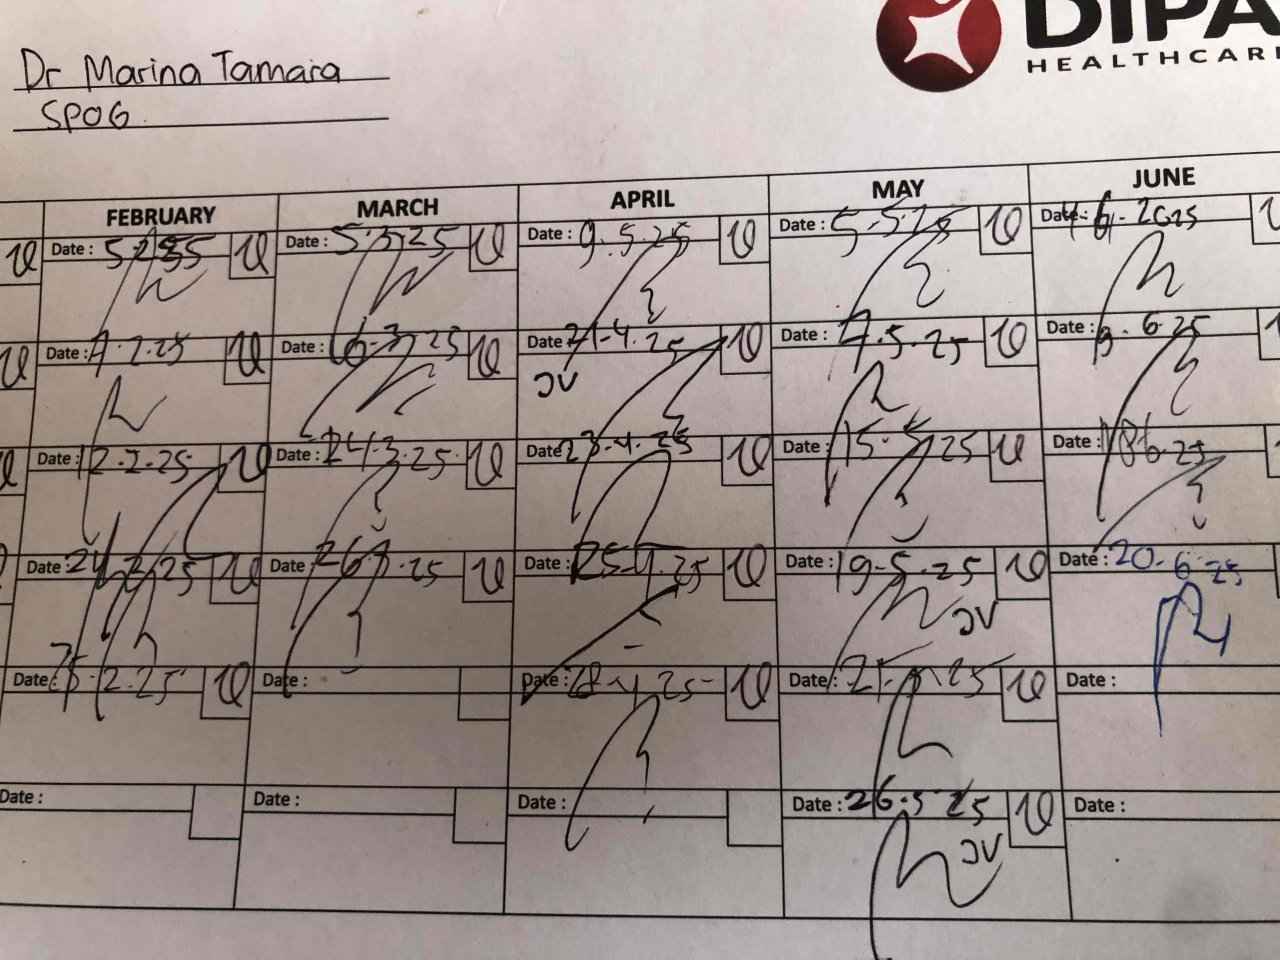 Dr Marina Tamara
SPOG
DIPA
HEALTHCAR
FEBRUARY MARCH APRIL MAY JUNE
Date : 5.2.25 Date : 5.3.25 Date : 9.5.25 Date : 5-5.25 Date : 4.6.2025
Date : 7.2.25 Date : 6-3.25 Date 21-4.25 Date : 7.5.25 Date : 9.6.25
JV
Date 12.2.25 Date : 24.3.25 Date 23-4.25 Date : 15.5.25 Date : 18 6.25
Date : 24.2.25 Date : 26.3.25 Date : 25-4.25 Date : 19-5.25 Date : 20-6-25
JV
Date 25.2.25 Date : Date : 28-4.25 Date : 21.5.25 Date :
Date : Date : Date : Date : 26.5.25 Date :
JV